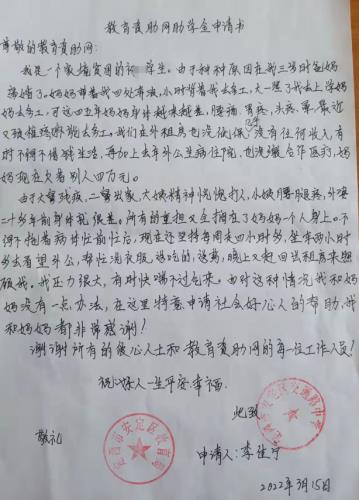 教育资助网助学金申请书
尊敬的教育资助网:
我是一个家境贫困的 学生。由于种种原因在我三岁时爸妈
离婚了。妈妈带着我四处奔波,小时背着我去务工,大一点了我去上学妈
妈去务工,可这四五年妈妈身体越来越差,腰痛、胃疼、头疼、 最近
又被 去务工。我们在外租房也没低保,没有任何收入,有
时不得不借钱生活,再加上去年外公生病住院,也没缴合作医疗,妈
妈现在欠着别人四万元。
由于大舅残疾,二舅出家,大姨精神恍惚打人,小姨腰腿疼,外婆
二十多年前身体就很差。所有的重担又全 在了妈妈一个人身上。不
得不拖着病体忙前忙后,现在还得每周末四小时多,坐车两小时
多去看望外公,帮忙洗衣服、送吃的、送药,晚上又赶回试租房来照
顾我。我压力很大,有时快喘不过气来。面对这种情况我和妈
妈没有一点办法,在这里特意申请社会好心人的帮助,我
和妈妈都非常感谢!
谢谢所有的爱心人士和教育资助网的每一位工作人员!
祝好人一生平安幸福。
此致
敬礼
申请人:李佳
2022年3月15日